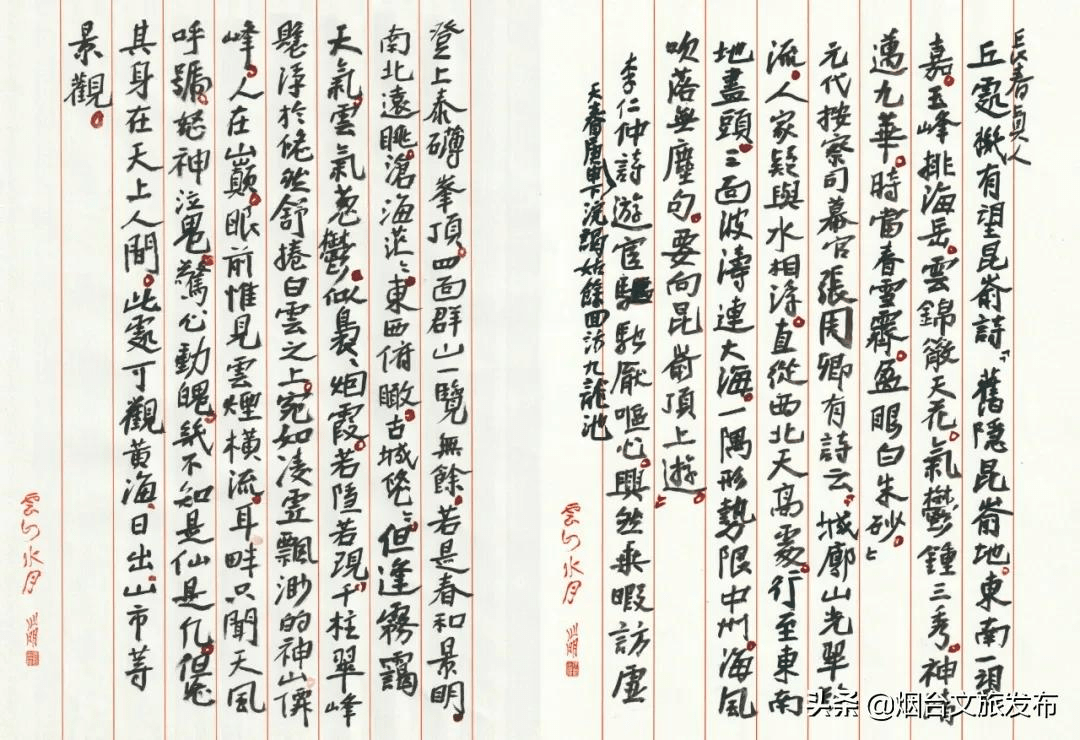 長春真人
丘處機有望昆嵛詩"舊隱昆嵛地。東南一望
嘉。五峰排海岳。雲錦散天花。氣鬱鍾三秀。神
邁九華。時當春雪霽。盈眼白朱砂。"
元代按察司幕官張周卿有詩云"城廓山光翠
流。人家疑與水相浮。直從西北天高處。行至東南
地盡頭。三面波濤連大海。一隅形勢限中州。海風
吹落無塵句。要向昆嵛頂上遊。"
李仁仲詩遊宦驅馳厭嘔心。興然乘暇訪虛
下浣 姑餘回訪九龍池
雲水月
登上泰礴峯頂。四面群山一覽無餘。若是春和景明。
南北遠眺。滄海茫茫。東西俯瞰。古城依依。但逢霧靄
天氣。雲氣蔥鬱。似裊裊烟霞。若隱若現。千柱翠峰
懸浮於倏然舒捲白雲之上。宛如凌霄飄渺的神山僊
峰。人在山巔。眼前惟見雲煙橫流。耳畔只聞天風
呼號。怒神泣鬼。驚心動魄。紙不知是仙是凡。但覺
其身在天上人間。此處可觀黃海。日出。山市等
景觀。
雲水月
头条 @烟台文旅发布